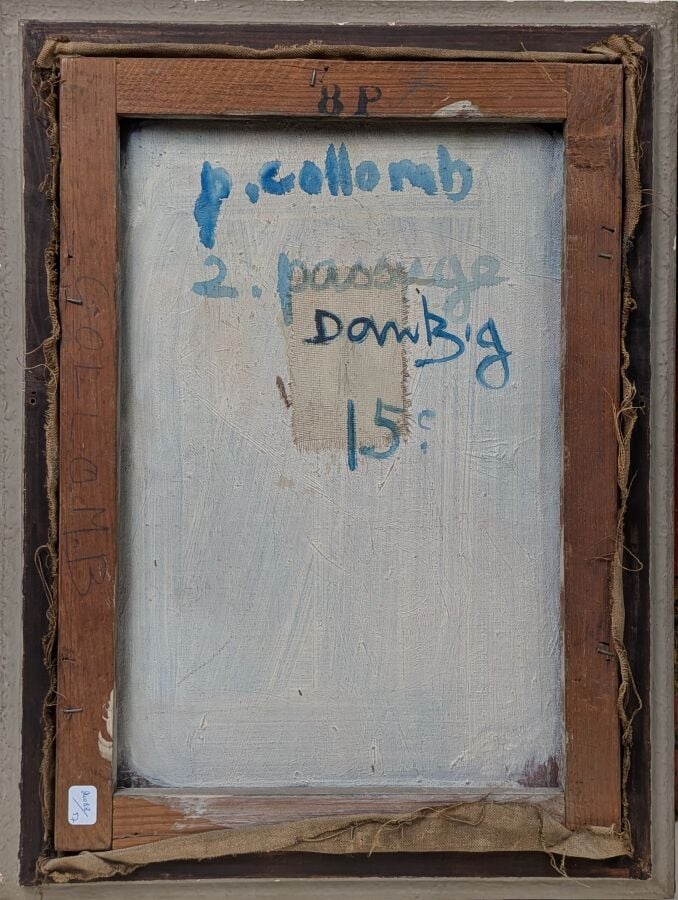 8P
p. collomb
2. passage
Dantzig
15:
COLLOMB